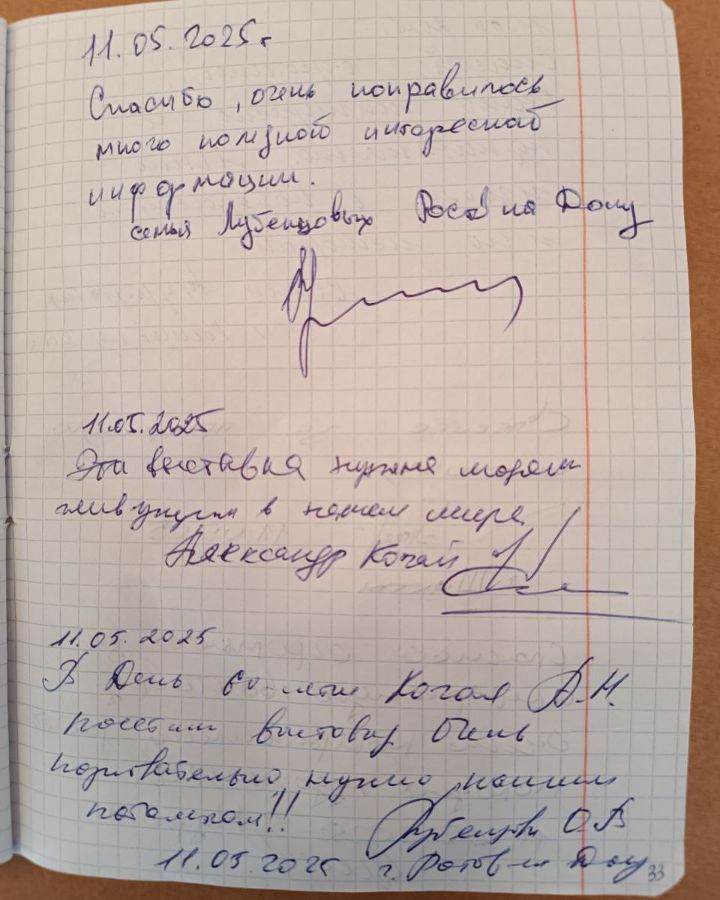 11.05.2025г
Спасибо, очень понравилось
много полезной интересной
информации.
семья Лубенцовых Рост на Дону
11.05.2025
Эта выставка нужна людям
живущим в нашем мире
Александр Кочай
11.05.2025
В День 60-летия Кочая А.Н.
посетили выставку Очень
познавательно нужно нашим
потомкам!!
Лубенцова О.В
11.05.2025 г. Ростов-на Дону
33